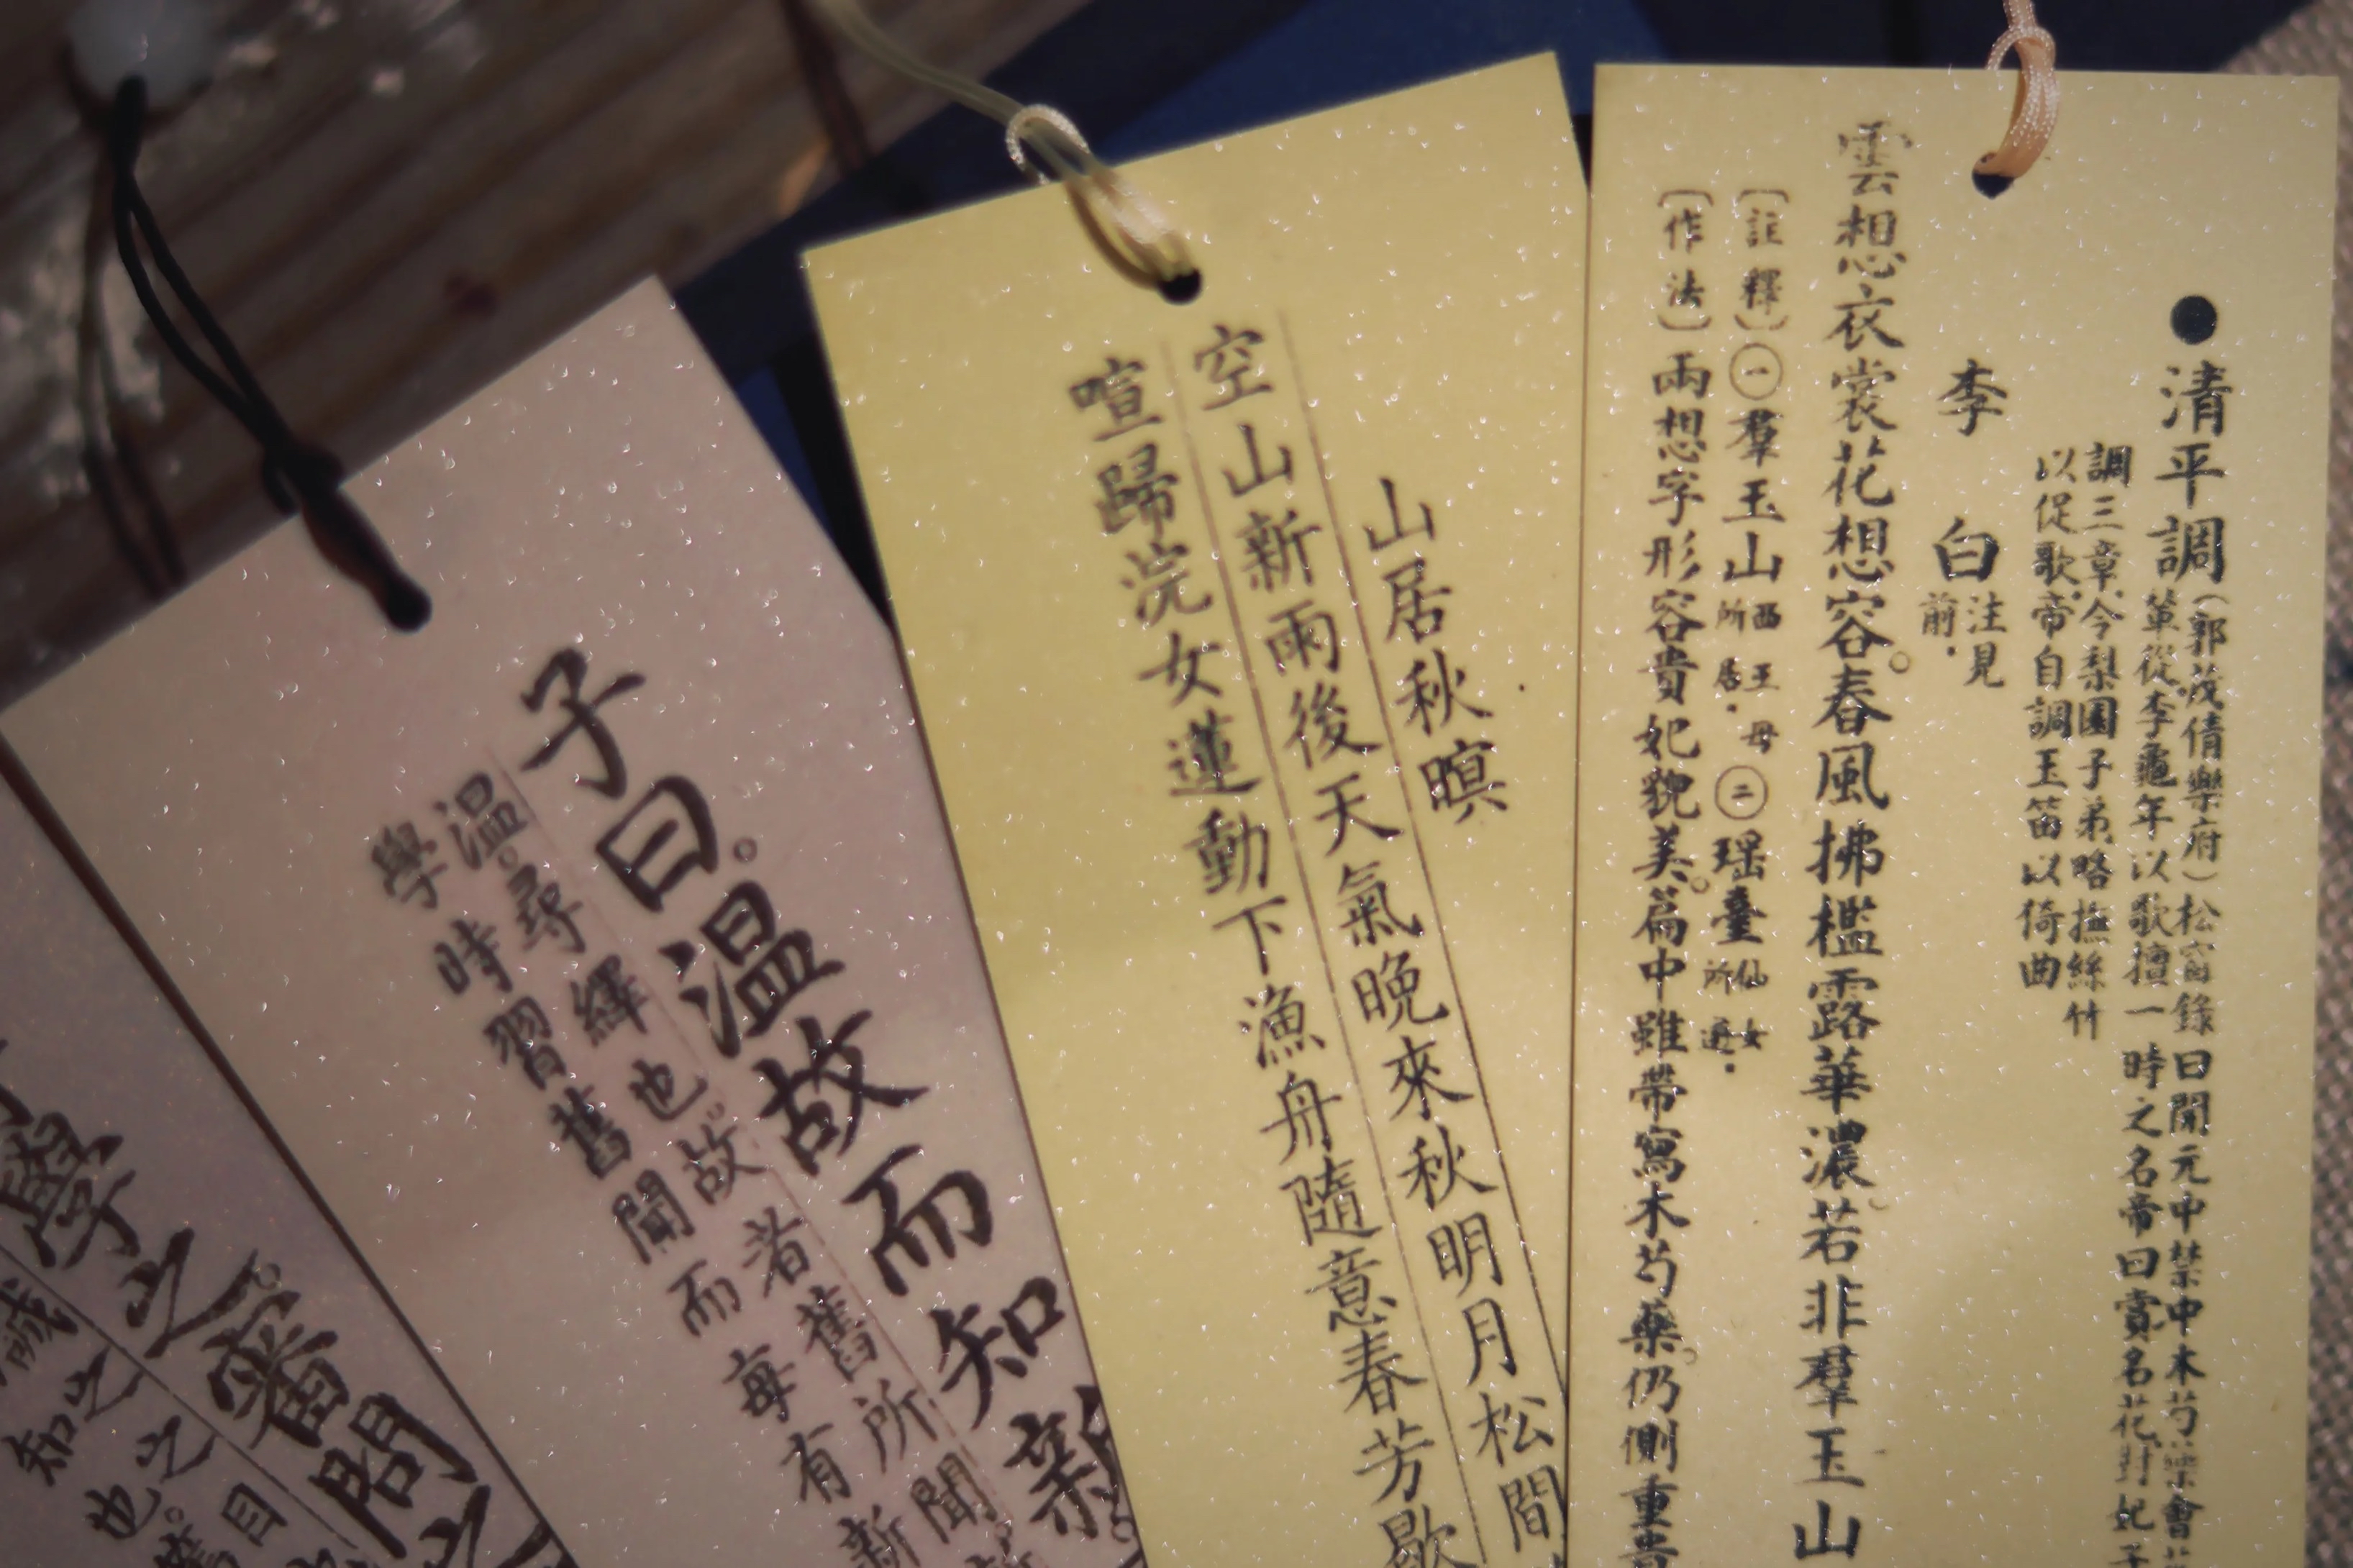 ●清平調
(郭茂倩樂府)松窗錄曰開元中禁中木芍藥會
輩從李龜年以歌擅一時之名帝曰賞名花對妃子
調三章今梨園子弟略撫絲竹
以促歌帝自調玉笛以倚曲
李白
注見
前.
雲想衣裳花想容。春風拂檻露華濃。若非羣玉山
〔註釋〕㊀羣玉山西王母所居.㊁瑶臺仙女所遊.
〔作法〕兩想字形容貴妃貌美。篇中雖帶寫木芍藥。仍側重貴
山居秋暝
空山新雨後天氣晚來秋明月松間
喧歸浣女蓮動下漁舟隨意春芳歇
子曰。溫故而知新。
溫。尋繹也。故者舊所聞。
學時習舊聞而每有新
學之。審問之
誠之之目
知也。